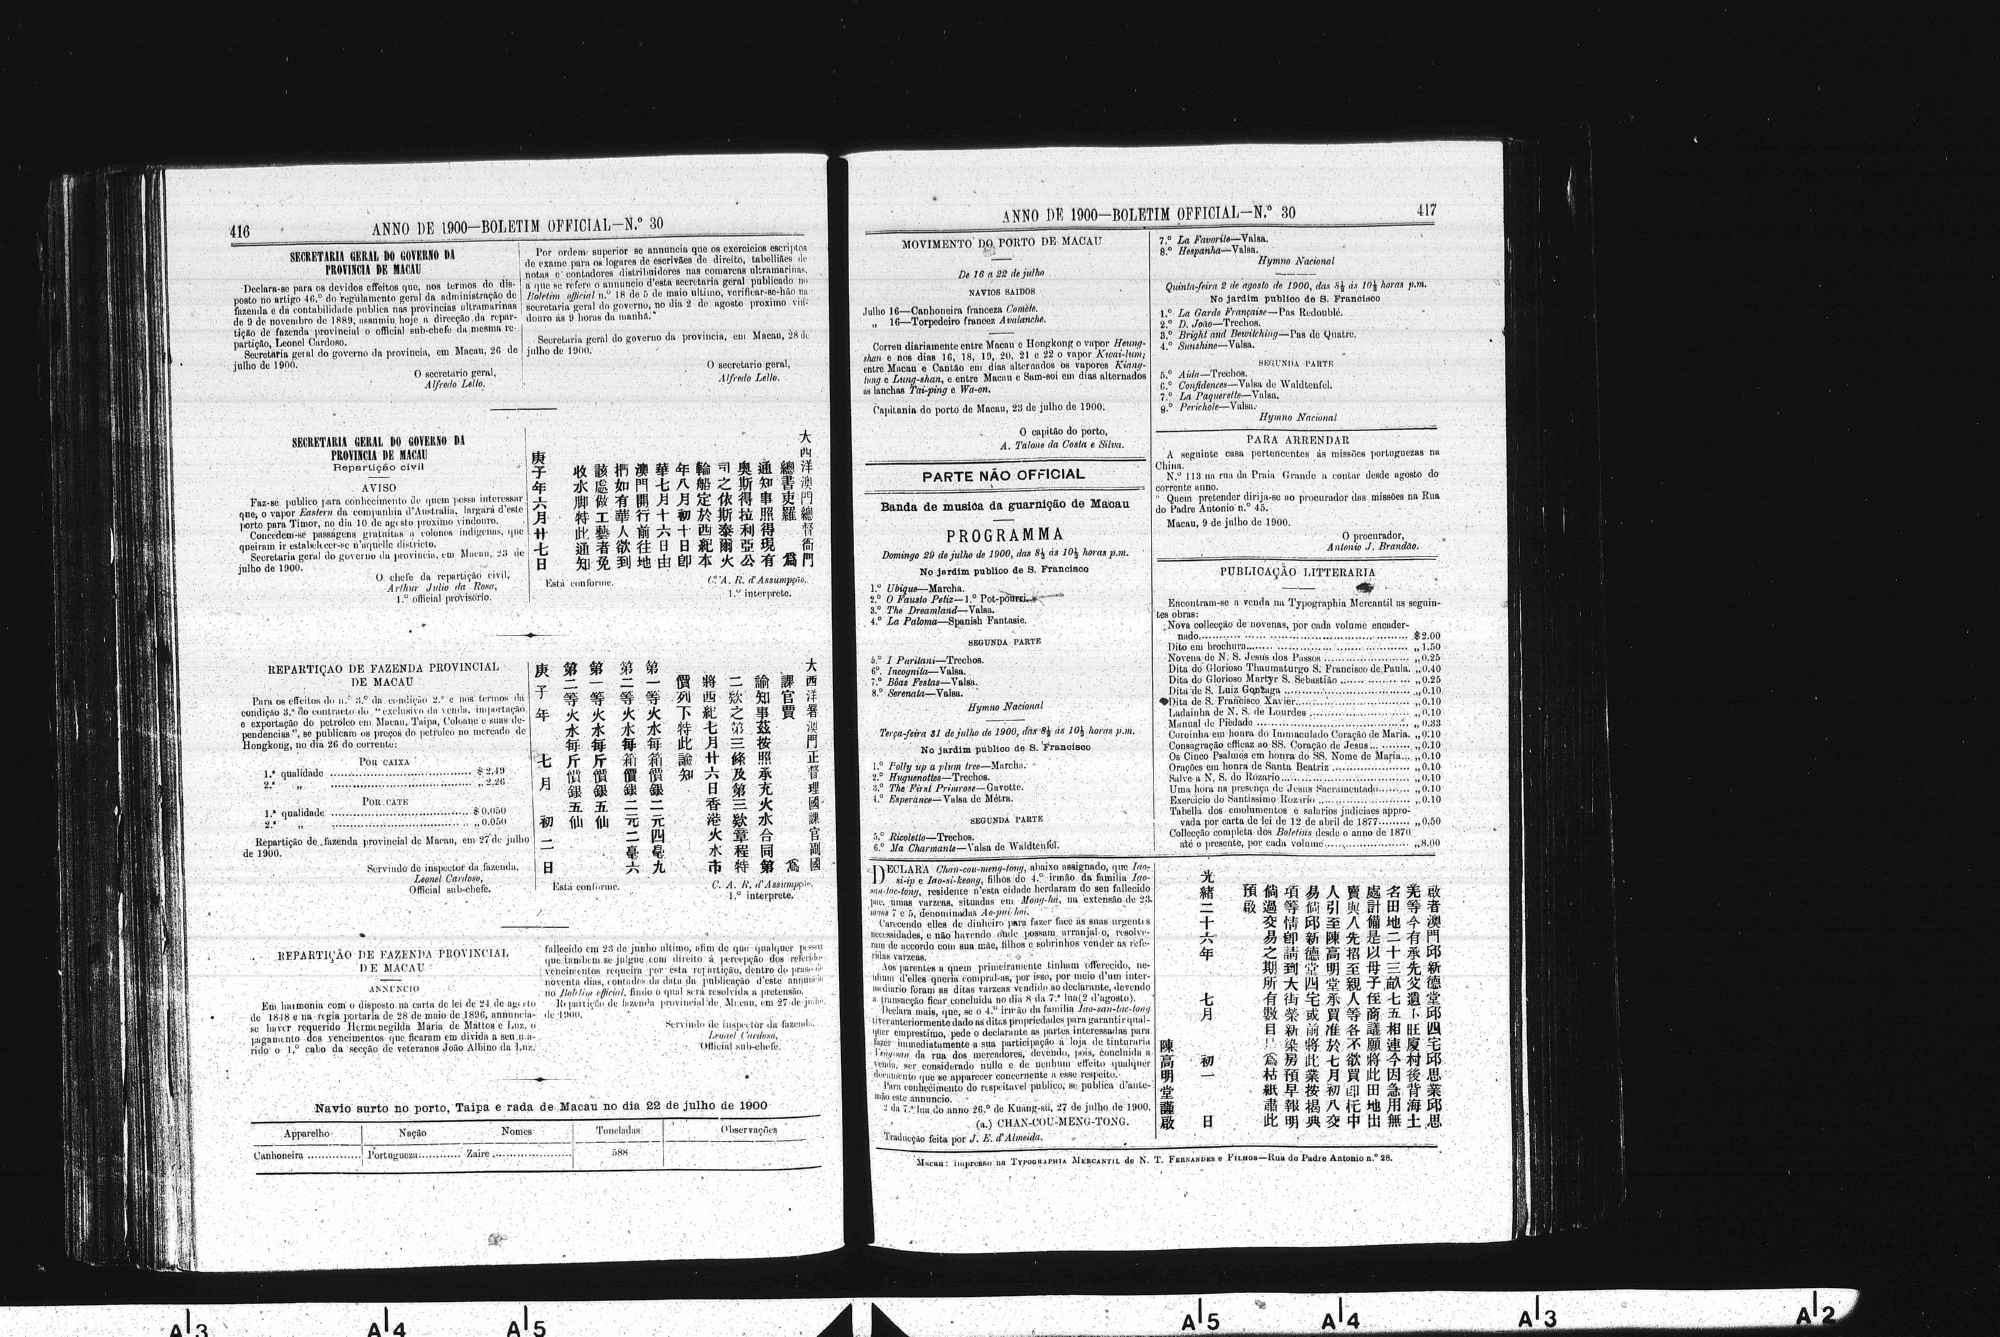 416 ANNO DE 1900—BOLETIM OFFICIAL—N.º 30
SECRETARIA GERAL DO GOVERNO DA
PROVINCIA DE MACAU
Declara-se para os devidos effeitos que, nos termos do dis-
posto no artigo 46.º do regulamento geral da administração de
fazenda e da contabilidade publica nas provincias ultramarinas
de 9 de novembro de 1889, assumiu hoje a direcção da repar-
tição de fazenda provincial o official sub-chefe da mesma re-
partição, Leonel Cardoso.
Secretaria geral do governo da provincia, em Macau, 26 de
julho de 1900.
O secretario geral,
Alfredo Lello.
Por ordem superior se annuncia que os exercicios escriptos
de exame para os logares de escrivães de direito, tabelliães de
notas e contadores distribuidores nas comarcas ultramarinas,
a que se refere o annuncio d'esta secretaria geral publicado no
Boletim official n.º 18 de 5 de maio ultimo, verificar-se-hão na
secretaria geral do governo, no dia 2 de agosto proximo vin-
douro ás 9 horas da manhã.
Secretaria geral do governo da provincia, em Macau, 28 de
julho de 1900.
O secretario geral,
Alfredo Lello.
SECRETARIA GERAL DO GOVERNO DA
PROVINCIA DE MACAU
Repartição civil
AVISO
Faz-se publico para conhecimento de quem possa interessar
que, o vapor Eastern da companhia d'Australia, largará d'este
porto para Timor, no dia 10 de agosto proximo vindouro.
Concedem-se passagens gratuitas a colonos indigenas, que
queiram ir estabelecer-se n'aquelle districto.
Secretaria geral do governo da provincia, em Macau, 23 de
julho de 1900.
O chefe da repartição civil,
Arthur Julio da Rosa,
1.º official provisorio.
大西洋澳門總督衙門
總書吏羅 爲
通知事照得現有
奧斯得拉利亞公
司之依斯泰爾火
輪船定於西紀本
年八月初十日卽
華七月十六日由
澳門開行前往地
捫如有華人欲到
該處做工藝者免
收水脚特此通知
庚子年六月廿七日
Está conforme. C. A. R. d'Assumpção,
1.º interprete.
REPARTIÇÃO DE FAZENDA PROVINCIAL
DE MACAU
Para os effeitos do n.º 3.º da condição 2.ª e nos termos da
condição 3.ª do contracto do "exclusivo da venda, importação
e exportação do petroleo em Macau, Taipa, Coloane e suas de-
pendencias", se publicam os preços do petroleo no mercado de
Hongkong, no dia 26 do corrente:
POR CAIXA
1.ª qualidade ........ $ 2,49
2.ª „ ........ „ 2,26
POR CATE
1.ª qualidade ........ $ 0,050
2.ª „ ........ „ 0,050
Repartição de fazenda provincial de Macau, em 27 de julho
de 1900.
Servindo de inspector da fazenda,
Leonel Cardoso,
Official sub-chefe.
大西洋署澳門正督理國課官副國
課官賈 爲
諭知事茲按照承充火水合同第
二欵之第三條及第三欵章程特
將西紀七月廿六日香港火水市
價列下特此諭知
第一等火水每箱價銀二元四毫九
第二等火水每箱價銀二元二毫六
第一等火水每斤價銀五仙
第二等火水每斤價銀五仙
庚子年 七月 初二日
Está conforme. C. A. R. d'Assumpção,
1.º interprete.
REPARTIÇÃO DE FAZENDA PROVINCIAL
DE MACAU
ANNUNCIO
Em harmonia com o disposto na carta de lei de 24 de agosto
de 1848 e na regia portaria de 28 de maio de 1896, annuncia-
se haver requerido Hermenegilda Maria de Mattos e Luz, o
pagamento dos vencimentos que ficaram em divida a seu ma-
rido o 1.º cabo da secção de veteranos João Albino da Luz,
fallecido em 23 de junho ultimo, afim de que qualquer pessoa
que tambem se julgue com direito á percepção dos referidos
vencimentos requeira por esta repartição, dentro do praso de
noventa dias, contados da data da publicação d'este annuncio
no Boletim official, findo o qual será resolvida a pretensão.
Repartição de fazenda provincial de Macau, em 27 de julho
de 1900.
Servindo de inspector da fazenda,
Leonel Cardoso,
Official sub-chefe.
Navio surto no porto, Taipa e rada de Macau no dia 22 de julho de 1900
Apparelho Nação Nomes Toneladas Observações
Canhoneira ........ Portugueza ........ Zaire ........ 588
ANNO DE 1900—BOLETIM OFFICIAL—N.º 30 417
MOVIMENTO DO PORTO DE MACAU
De 16 a 22 de julho
NAVIOS SAIDOS
Julho 16—Canhoneira franceza Comète.
„ 16—Torpedeiro francez Avalanche.
Correu diariamente entre Macau e Hongkong o vapor Heung-
shan e nos dias 16, 18, 19, 20, 21 e 22 o vapor Kwai-lum;
entre Macau e Cantão em dias alternados os vapores Kiang-
tung e Lung-shan, e entre Macau e Sam-soi em dias alternados
as lanchas Tai-ping e Wa-on.
Capitania do porto de Macau, 23 de julho de 1900.
O capitão do porto,
A. Talone da Costa e Silva.
PARTE NÃO OFFICIAL
Banda de musica da guarnição de Macau
PROGRAMMA
Domingo 29 de julho de 1900, das 8½ ás 10½ horas p.m.
No jardim publico de S. Francisco
1.º Ubique—Marcha.
2.º O Fausto Petiz—1.º Pot-pourri.
3.º The Dreamland—Valsa.
4.º La Paloma—Spanish Fantasie.
SEGUNDA PARTE
5.º I Puritani—Trechos.
6.º Incognita—Valsa.
7.º Bôas Festas—Valsa.
8.º Serenata—Valsa.
Hymno Nacional
Terça-feira 31 de julho de 1900, das 8½ ás 10½ horas p.m.
No jardim publico de S. Francisco
1.º Polly up a plum tree—Marcha.
2.º Huguenottes—Trechos.
3.º The First Primrose—Gavotte.
4.º Esperance—Valsa de Métra.
SEGUNDA PARTE
5.º Ricoletto—Trechos.
6.º Ma Charmante—Valsa de Waldtenfel.
7.º La Favorite—Valsa.
8.º Hespanha—Valsa.
Hymno Nacional
Quinta-feira 2 de agosto de 1900, das 8½ ás 10½ horas p.m.
No jardim publico de S. Francisco
1.º La Garde Française—Pas Redoublé.
2.º D. João—Trechos.
3.º Bright and Bewitching—Pas de Quatre.
4.º Sunshine—Valsa.
SEGUNDA PARTE
5.º Aida—Trechos.
6.º Confidences—Valsa de Waldtenfel.
7.º La Paquerette—Valsa.
8.º Perichole—Valsa.
Hymno Nacional
PARA ARRENDAR
A seguinte casa pertencentes ás missões portuguezas na
China.
N.º 113 na rua da Praia Grande a contar desde agosto do
corrente anno.
Quem pretender dirija-se ao procurador das missões na Rua
do Padre Antonio n.º 45.
Macau, 9 de julho de 1900.
O procurador,
Antonio J. Brandão.
PUBLICAÇÃO LITTERARIA
Encontram-se a venda na Typographia Mercantil as seguin-
tes obras:
Nova collecção de novenas, por cada volume encader-
nado ........ $2.00
Dito em brochura ........ „ 1.50
Novena de N. S. Jesus dos Passos ........ „ 0.25
Dita do Glorioso Thaumaturgo S. Francisco de Paula. „ 0.40
Dita do Glorioso Martyr S. Sebastião ........ „ 0.25
Dita de S. Luiz Gonzaga ........ „ 0.10
Dita de S. Francisco Xavier ........ „ 0.10
Ladainha de N. S. de Lourdes ........ „ 0.10
Manual de Piedade ........ „ 0.33
Coroinha em honra do Immaculado Coração de Maria. „ 0.10
Consagração efficaz ao SS. Coração de Jesus ........ „ 0.10
Os Cinco Psalmos em honra do SS. Nome de Maria ... „ 0.10
Orações em honra de Santa Beatriz ........ „ 0.10
Salve a N. S. do Rozario ........ „ 0.10
Uma hora na presença de Jesus Sacramentado ........ „ 0.10
Exercicio do Santissimo Rozario ........ „ 0.10
Tabella dos emolumentos e salarios judiciaes appro-
vada por carta de lei de 12 de abril de 1877 ........ „ 0,50
Collecção completa dos Boletins desde o anno de 1870
até o presente, por cada volume ........ „ 8.00
DECLARA Chan-cou-meng-tong, abaixo assignado, que Iao-
si-ip e Iao-si-keong, filhos do 4.º irmão da familia Iao-
san-tac-tong, residente n'esta cidade herdaram do seu fallecido
pae, umas varzeas, situadas em Mong-há, na extensão de 23
7 e 5, denominadas Ao-pui-hoi.
Carecendo elles de dinheiro para fazer face ás suas urgentes
necessidades, e não havendo onde possam arranjal-o, resolve-
ram de accordo com sua mãe, filhos e sobrinhos vender as refe-
ridas varzeas.
Aos parentes a quem primeiramente tinham offerecido, ne-
nhum d'elles queria compral-as, por isso, por meio d'um inter-
mediario foram as ditas varzeas vendido ao declarante, devendo
a transacção ficar concluida no dia 8 da 7.ª lua (2 d'agosto).
Declara mais, que, se o 4.º irmão da familia Iao-san-tac-tong
tiver anteriormente dado as ditas propriedades para garantir qual-
quer emprestimo, pede o declarante as partes interessadas para
fazer immediatamente a sua participação á loja de tinturaria
da rua dos mercadores, devendo, pois, concluida a
venda, ser considerado nullo e de nenhum effeito qualquer
documento que se apparecer concernente a esse respeito.
Para conhecimento do respeitavel publico, se publica d'ante-
mão este annuncio.
2 da 7.ª lua do anno 26.º de Kuang-sü, 27 de julho de 1900.
(a.) CHAN-COU-MENG-TONG.
Traducção feita por J. E. d'Almeida.
啟者澳門邱新德堂邱四宅邱思業邱思
羌等今有承先父遺下旺厦村後背海土
名田地二十三畝七五相連今因急用無
處計備是以母子侄商議願將此田地出
賣與人先招至親人等各不欲買卽托中
人引至陳高明堂承買准於七月初八交
易倘邱新德堂四宅或前將此業按揭典
項等情卽請到大街榮新染房預早報明
倘過交易之期所有數目 爲枯紙肅此
預啟
光緒二十六年 七月 初一日
陳高明堂謹啟
Macau: impresso na TYPOGRAPHIA MERCANTIL de N. T. FERNANDES e FILHOS—Rua do Padre Antonio n.º 28.
A3 A4 A5 A5 A4 A3 A2